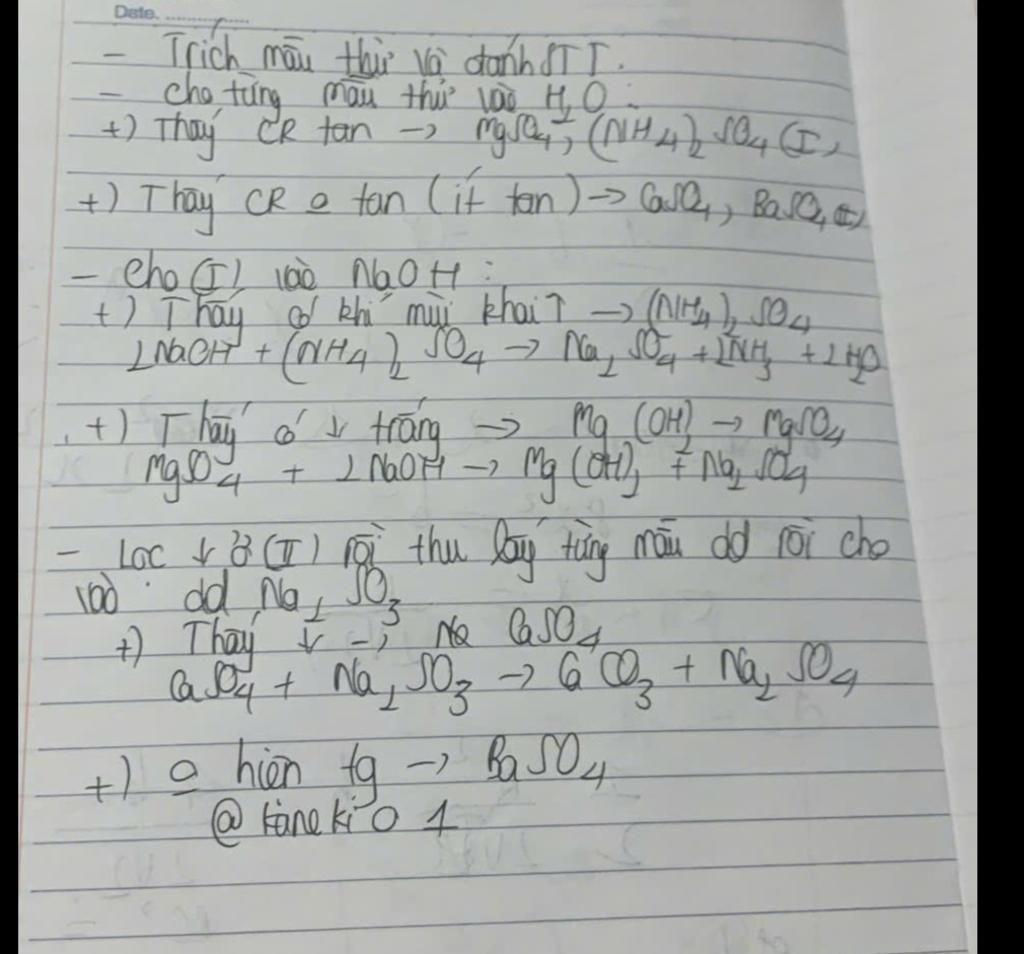 Date. ..............
- Trích mẫu thử và đánh STT.
- cho từng mẫu thử vào H2O :
+) Thấy CR tan → MgSO4, (NH4)2 SO4 (I)
+) Thấy CR o tan (ít tan) → CaSO4, BaSO4 (II)
- Cho (I) vào NaOH :
+) Thấy có khí mùi khai ↑ → (NH4)2 SO4
2NaOH + (NH4)2 SO4 → Na2 SO4 + 2NH3 + 2H2O
+) Thấy có ↓ trắng → Mg (OH)2 → MgSO4
MgSO4 + 2NaOH → Mg (OH)2 + Na2 SO4
- Lọc ↓ ở (II) rồi thu lấy từng mẫu dd rồi cho
vào dd Na2 SO3
+) Thấy ↓ → Na CaSO4
CaSO4 + Na2 SO3 → Ca CO3 + Na2 SO4
+) o hiện tg → BaSO4
@ kanekiO 1